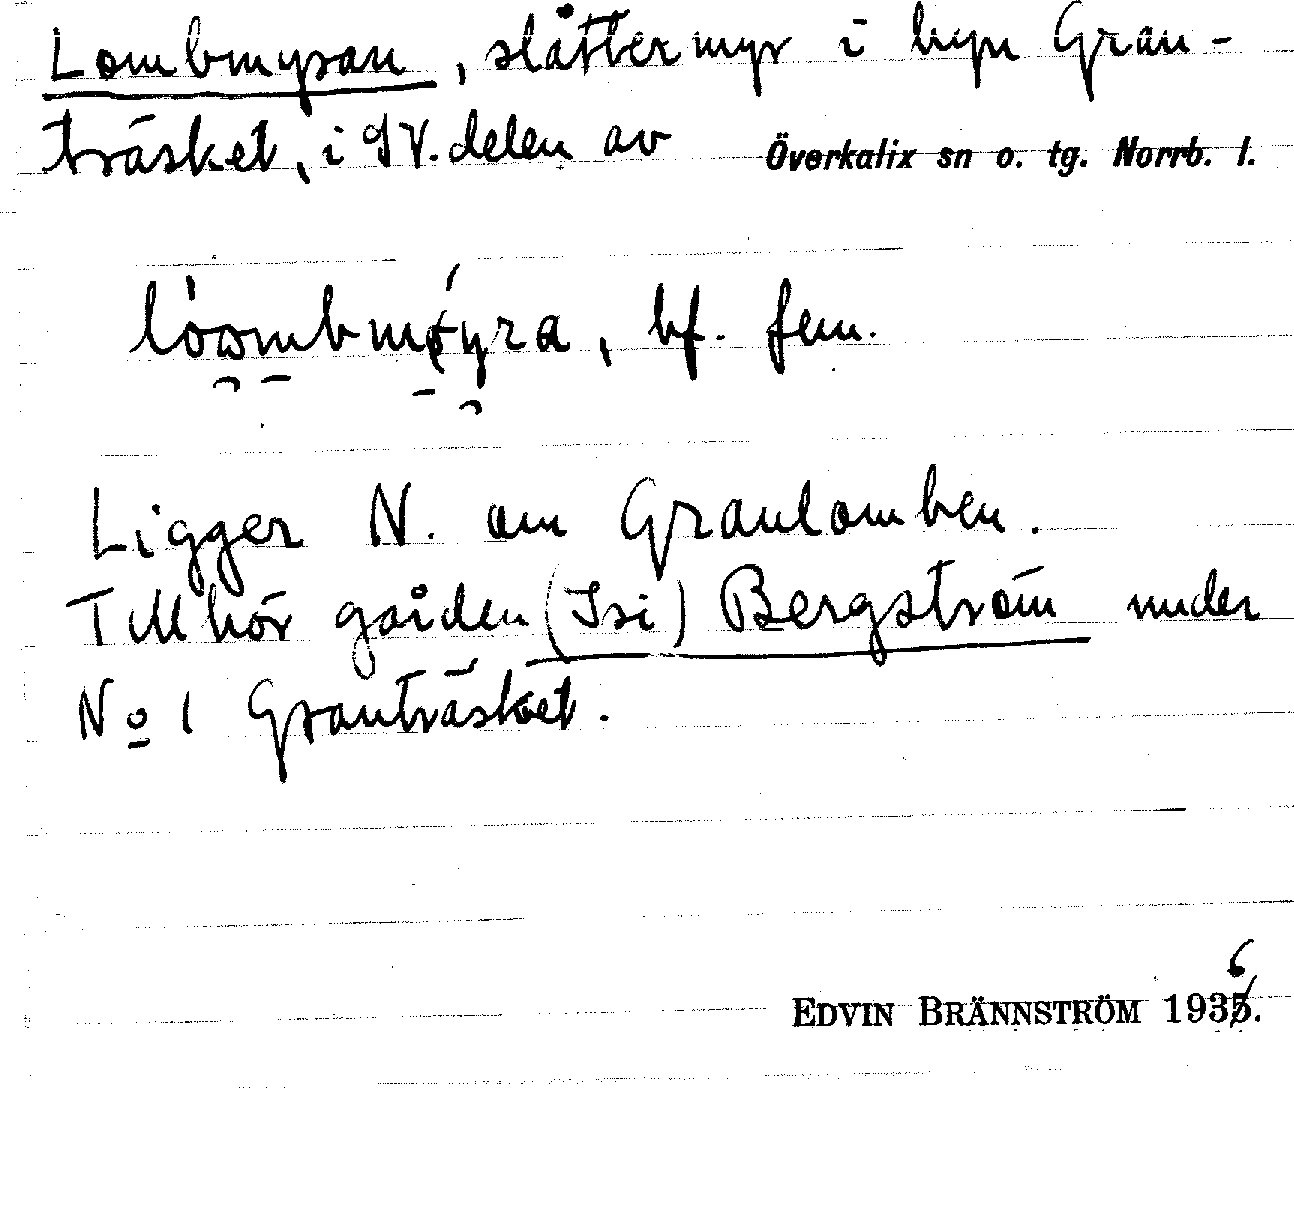 Lombmyran, slåttermyr i byn Gran-
träsket, i SV. delen av Överkalix sn o. tg. Norrb. l.
bf. fem.
Ligger N. om Granlomben.
Tillhör gården (Isi) Bergström under
No 1 Granträsket.
6
EDVIN BRÄNNSTRÖM 1935.